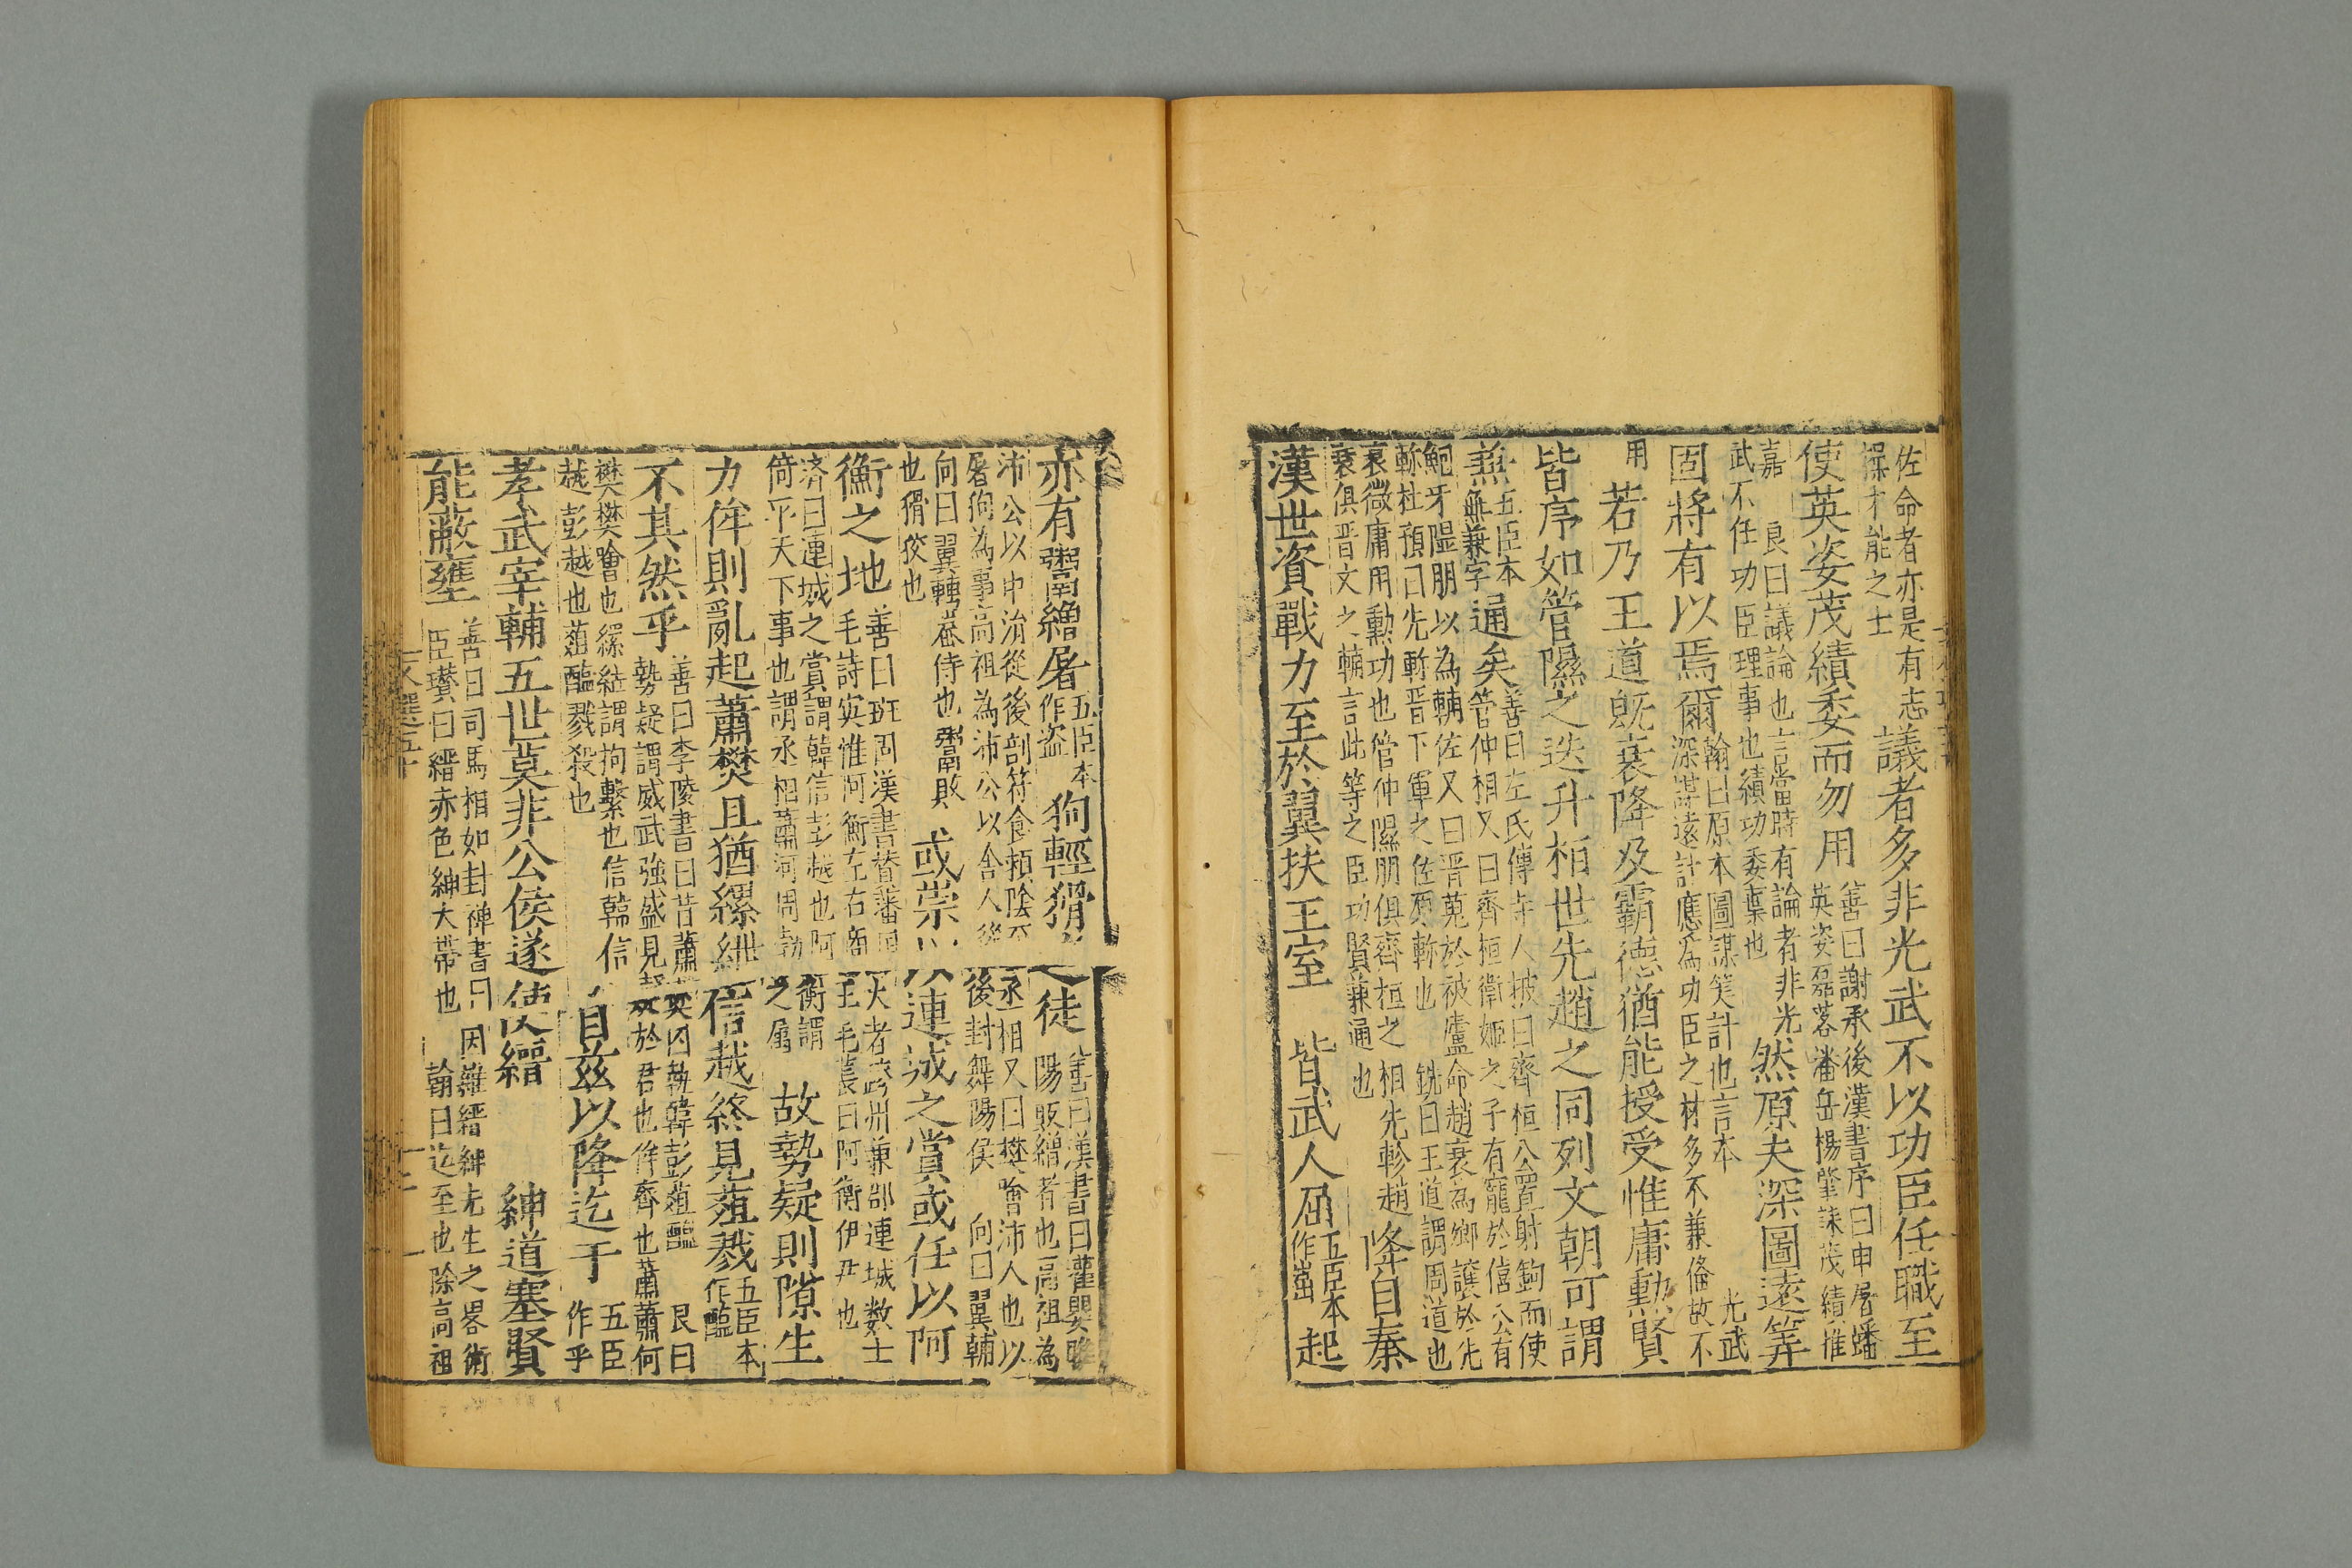 佐命者亦是有志
操才能之士
議者多非光武不以功臣任職至
使英姿茂績委而勿用
善曰謝承後漢書序曰申屠蟠
英姿磊落潘岳楊肇誄茂績惟
嘉 良曰議論也言當時有論者非光
武不任功臣理事也績功委棄也
然原夫深圖遠筭
固將有以焉爾
翰曰原本圖謀筭計也言本 光武
深謀遠計應爲功臣之材多不兼俻故不
用
若乃王道旣衰降及霸德猶能授受惟庸勳賢
皆序如管隰之迭升桓世先趙之同列文朝可謂
兼
五臣本
無兼字
通矣
善曰左氏傳寺人披曰齊桓公置射鉤而使
管仲相又曰齊桓衛姬之子有寵於僖公有
鮑牙隰朋以為輔佐又曰晋蒐於被廬命趙衰為卿讓於先
軫杜預曰先軫晋下軍之佐原軫也 銑曰王道謂周道也
衰微庸用勲功也管仲隰朋俱齊桓之相先軫趙
衰俱晋文之輔言此等之臣功賢兼通也
降自秦
漢世資戰力至於翼扶王室 皆武人屈
五臣本
作崛
起
亦有鬻繒屠
五臣本
作盗
狗輕猾之徒
善曰漢書曰灌嬰睢
陽販繒者也高祖為
沛公以中涓從後剖符食頴隂丞相又曰樊噲沛人也以
屠狗為事高祖為沛公以舍人從後封舞陽侯 向曰翼輔
向曰翼轉崔侍也鬻敗
也猾狡也
或崇以連城之賞或任以阿
衡之地
善曰班固漢書賛藩國大者跨州兼郡連城数士
毛詩実惟阿衡左右商王毛萇曰阿衡伊尹也
済曰連城之賞謂韓信彭越也阿衡謂
倚平天下事也謂丞相蕭河周勃之属
故勢疑則隙生
力侔則亂起蕭樊且猶縲紲信越終見葅戮
五臣本
作醢
不其然乎
善曰李陵書曰昔蕭樊囚執韓彭葅醢 良曰
勢疑謂威武強盛見疑於君也侔齊也蕭蕭何
樊樊噲也縲紲謂拘繫也信韓信
越彭越也葅醢戮殺也
自茲以降迄于
五臣
作乎
孝武宰輔五世莫非公侯遂使縉 紳道塞賢
能蔽壅
善曰司馬相如封禅書曰因雜縉紳先生之畧術
臣瓚曰縉赤色紳大帯也 翰曰迄至也除高祖